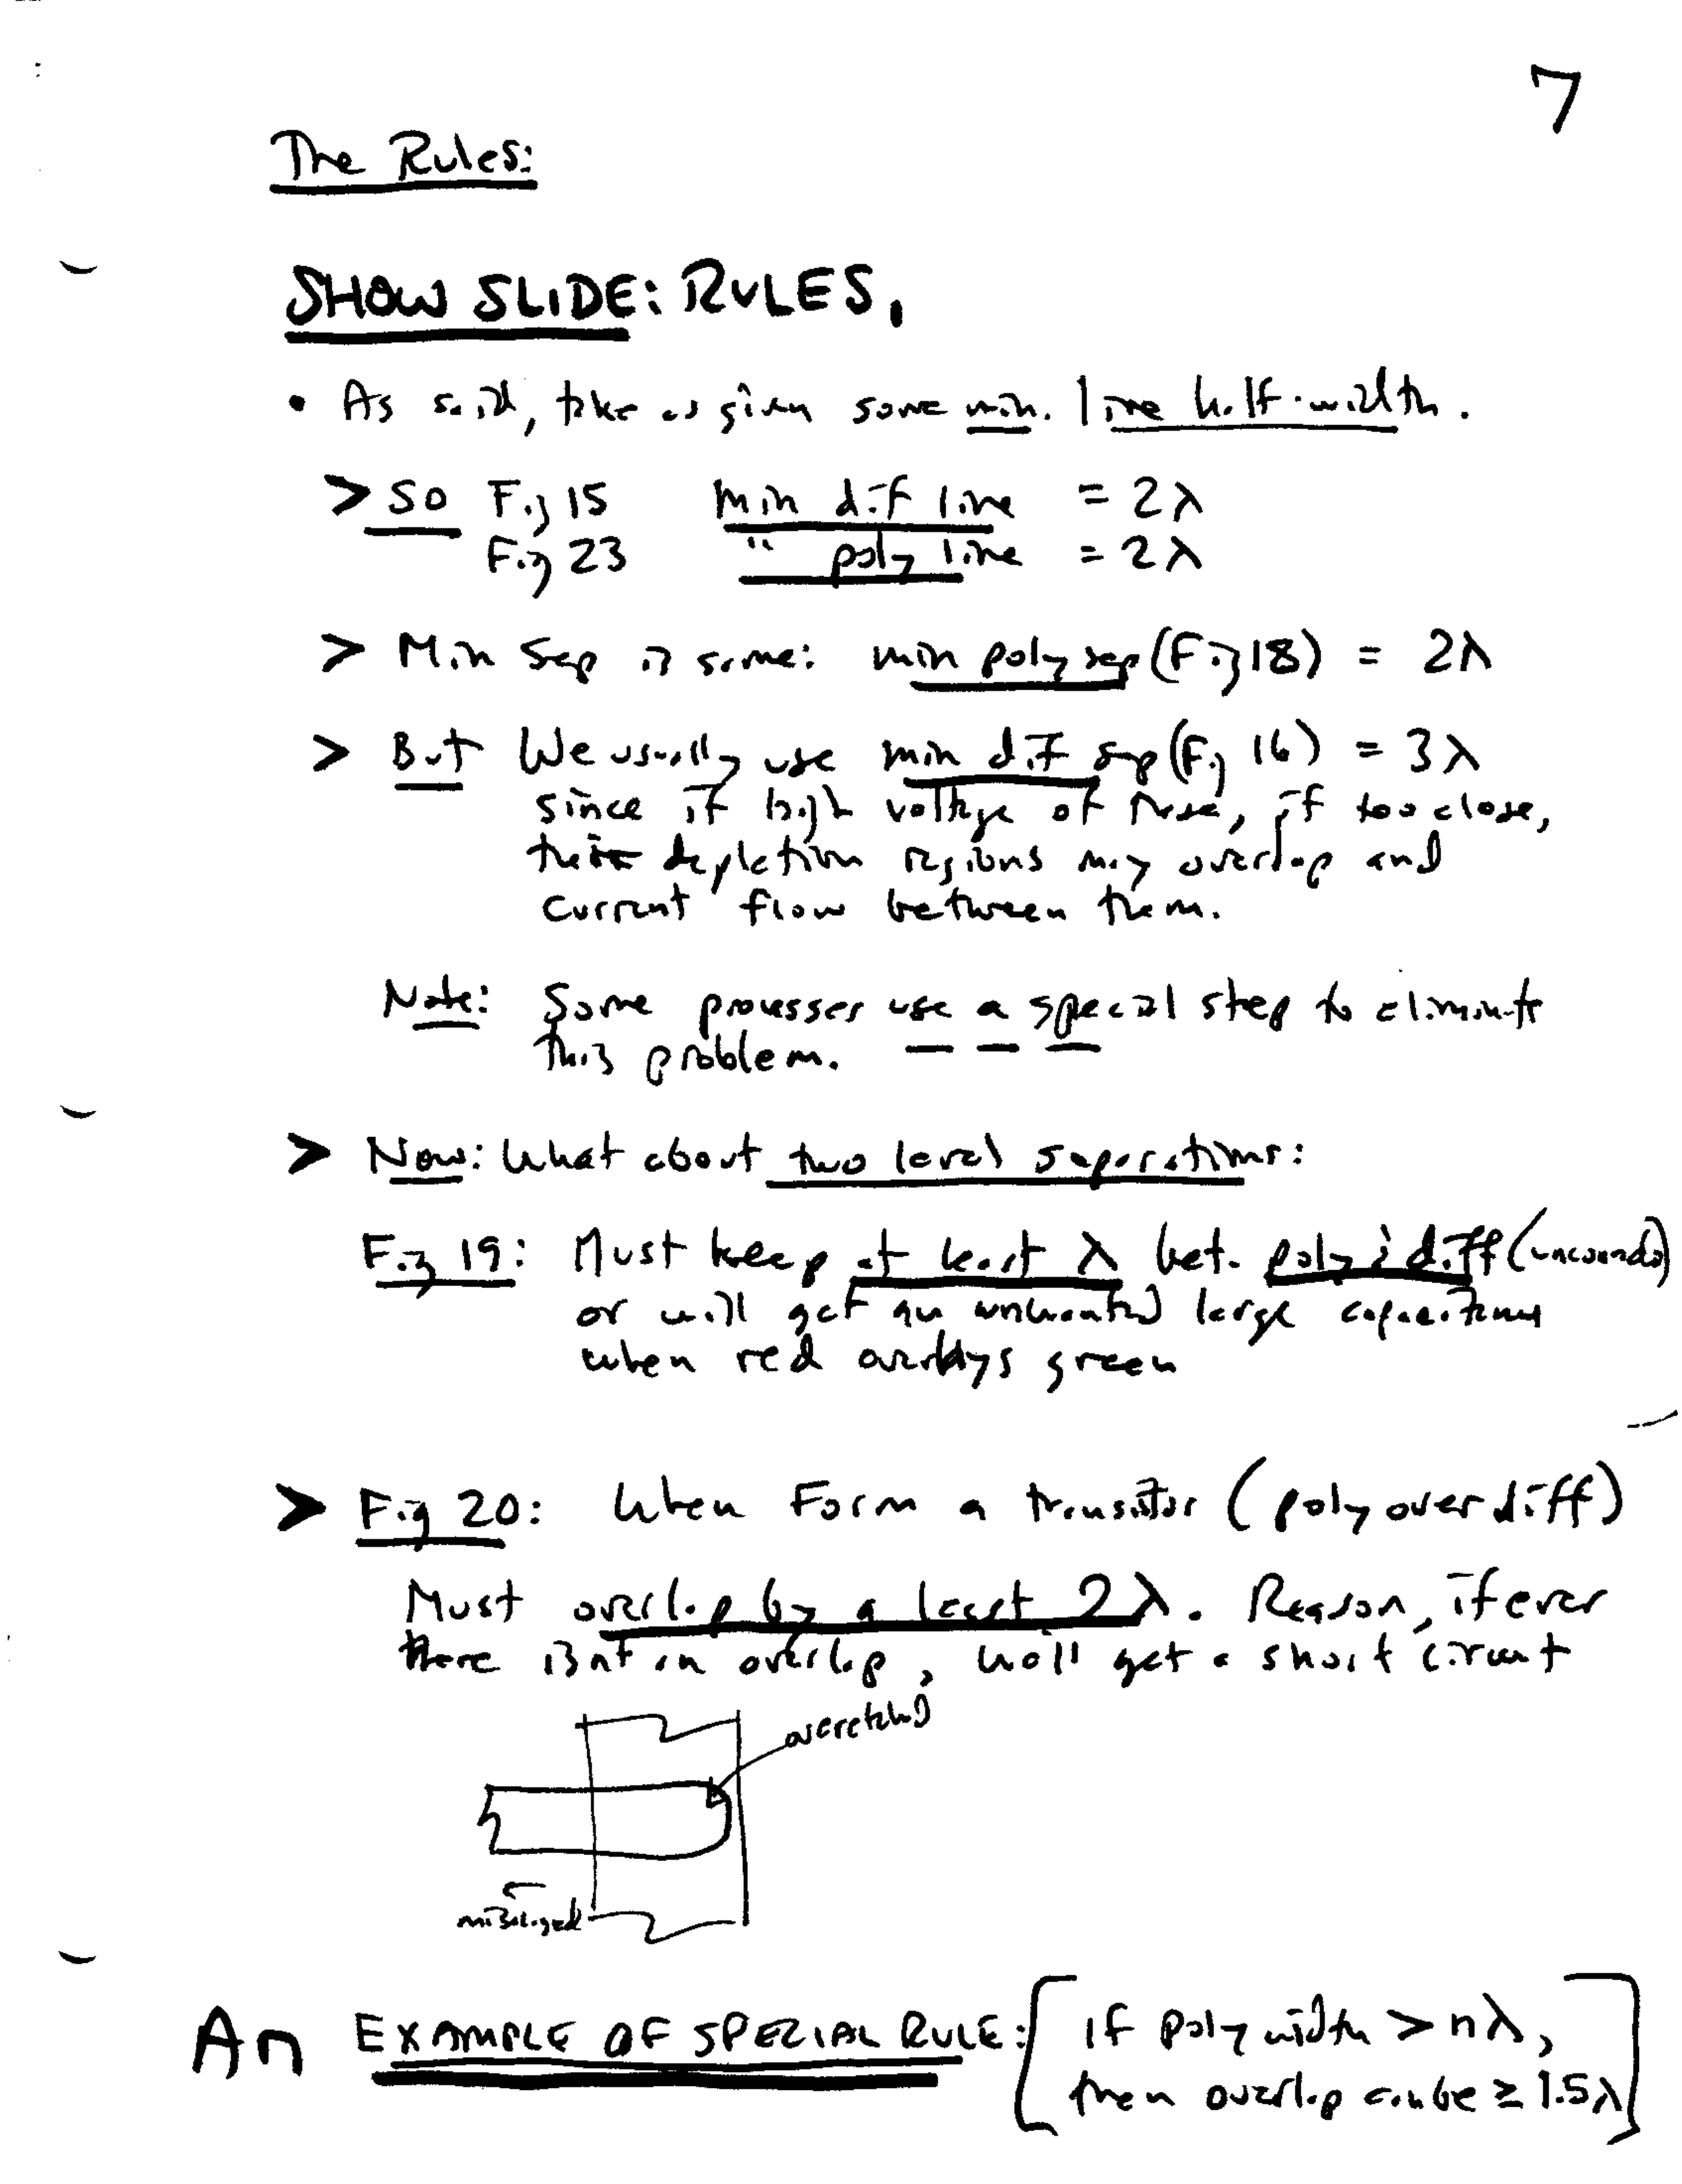 7
The Rules:
SHOW SLIDE: RULES,
• As said, take as given some min. line half-width.
> So Fig 15 Min dif line = 2λ
Fig 23 " poly line = 2λ
> Min Sep is same: min poly sep (Fig 18) = 2λ
> But We usually use min dif sep (Fig 16) = 3λ
since if high voltage of these, if too close,
depletion regions may overlap and
current flow between them.
Note: Some processes use a special step to eliminate
this problem.
> Now: What about two level separations:
Fig 19: Must keep at least λ bet. poly & diff
or will get an unwanted large capacitance
when red overlays green
> Fig 20: When Form a transistor (poly over diff)
Must overlap by a least 2λ. Reason, if ever
there isnt an overlap, will get a short circuit
overetched
misaligned
An EXAMPLE OF SPECIAL RULE: [If poly width > nλ,
then overlap can be ≥ 1.5λ]